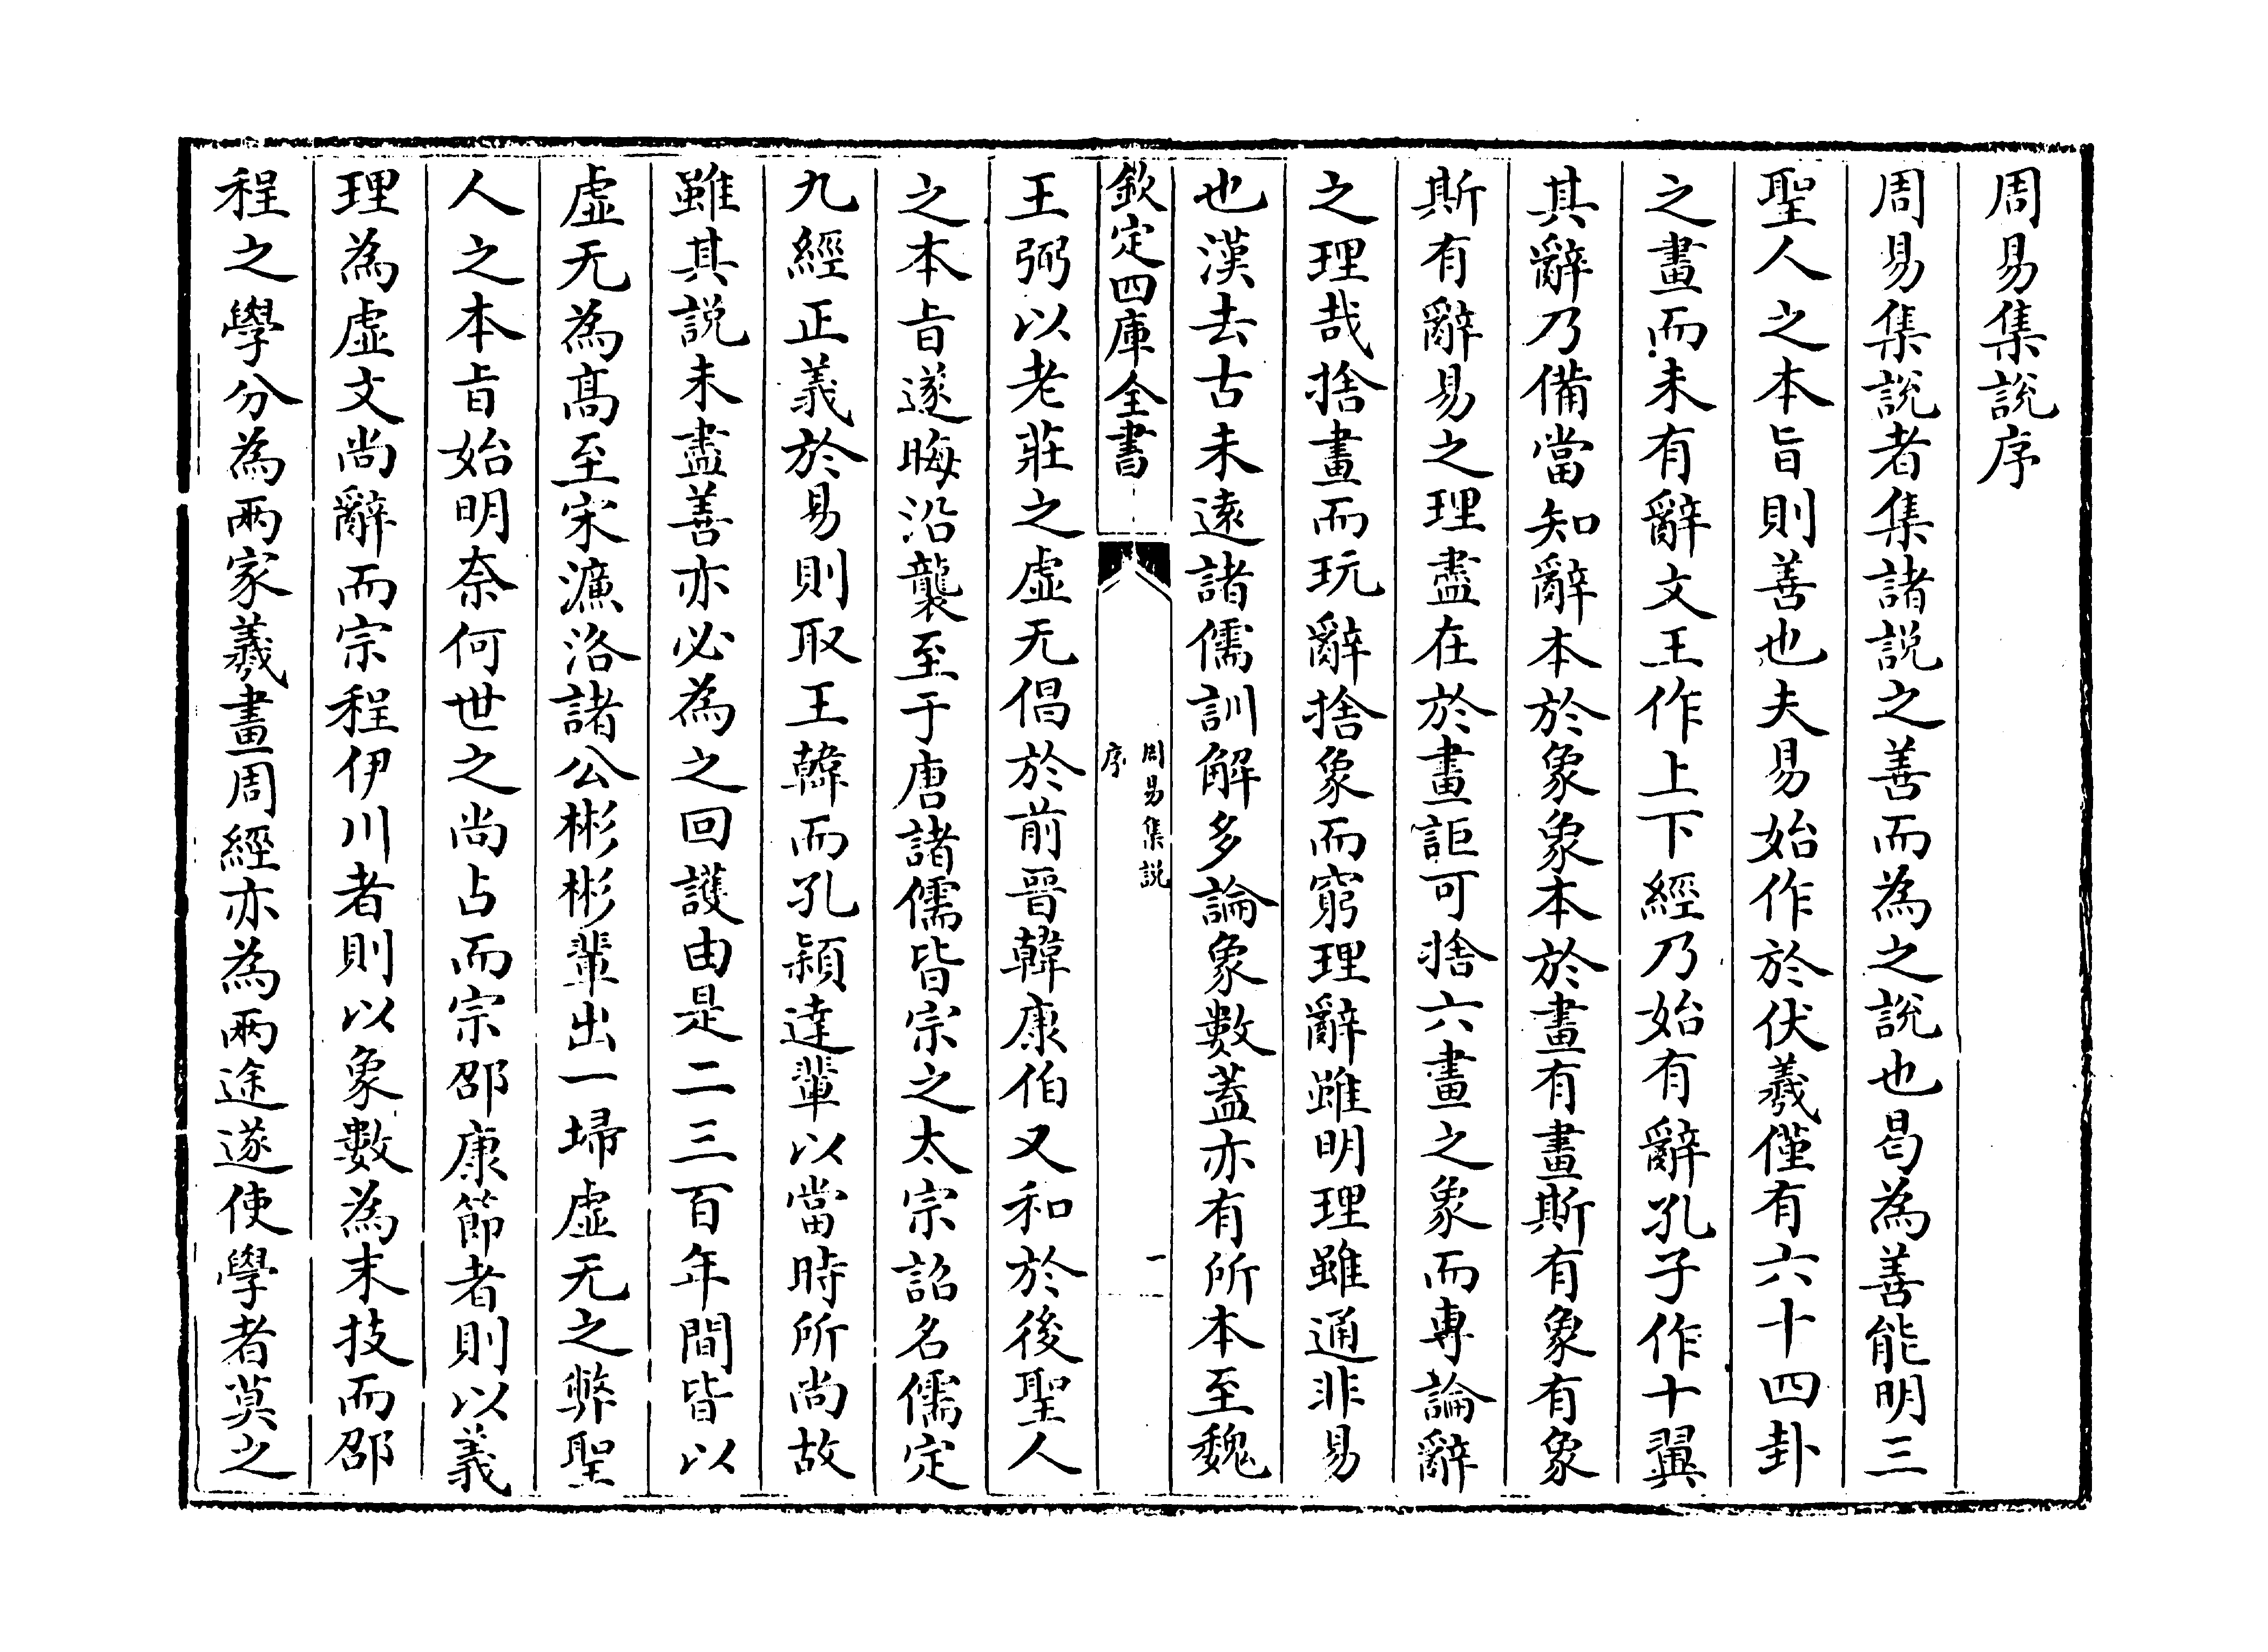 周易集說序
周易集說者集諸說之善而為之說也曷為善能明三
聖人之本旨則善也夫易始作於伏羲僅有六十四卦
之畫而未有辭文王作上下經乃始有辭孔子作十翼
其辭乃備當知辭本於象象本於畫有畫斯有象有象
斯有辭易之理盡在於畫詎可捨六畫之象而專論辭
之理哉捨畫而玩辭捨象而窮理辭雖明理雖通非易
也漢去古未遠諸儒訓解多論象數蓋亦有所本至魏
欽定四庫全書
周易集說
序
一
王弼以老莊之虛无倡於前晉韓康伯又和於後聖人
之本旨遂晦沿襲至于唐諸儒皆宗之太宗詔名儒定
九經正義於易則取王韓而孔穎達輩以當時所尚故
雖其説未盡善亦必為之回護由是二三百年間皆以
虛无為髙至宋濂洛諸公彬彬輩出一埽虛无之弊聖
人之本旨始明奈何世之尚占而宗邵康節者則以義
理為虛文尚辭而宗程伊川者則以象數為末技而邵
程之學分為兩家羲畫周經亦為兩途遂使學者莫之